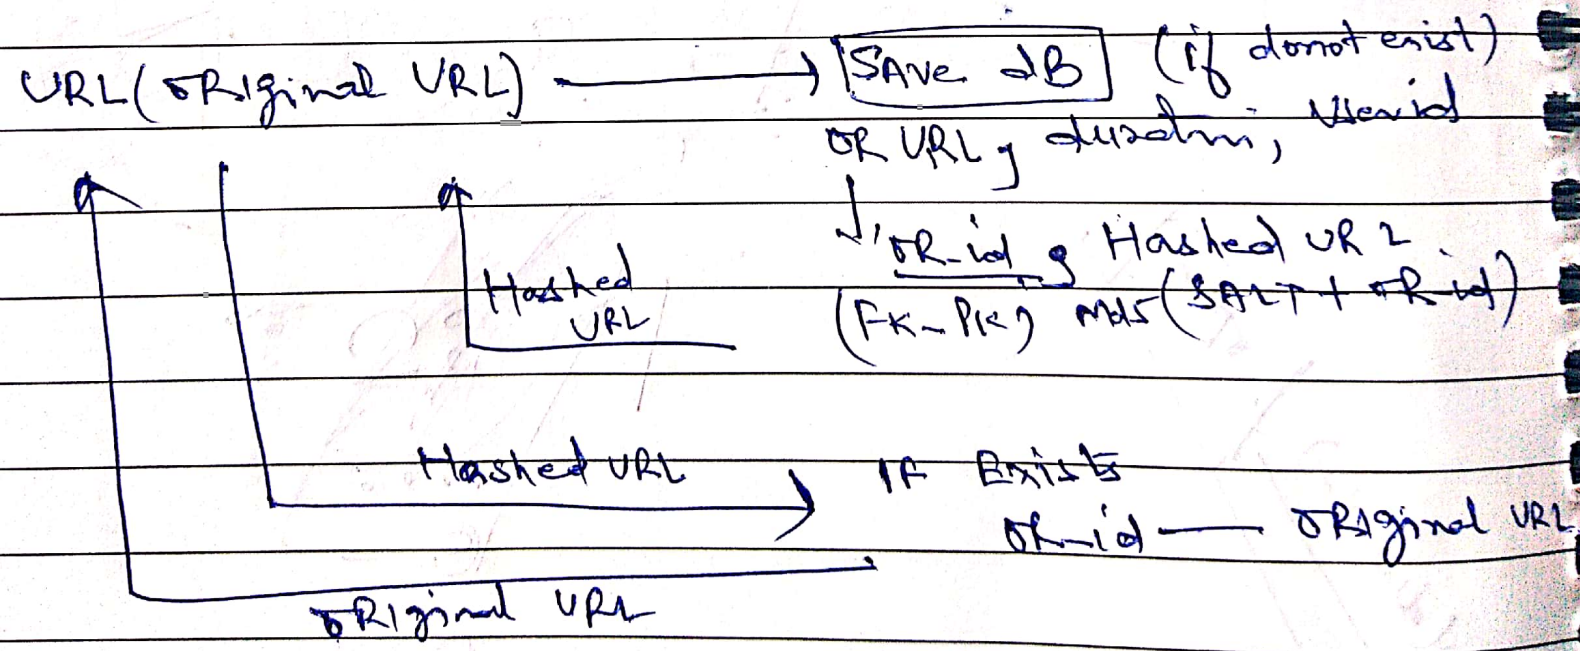 URL (ORIginal URL) → SAve dB (if donot exist)
OR URL, duration, Userid
OR-id, Hashed URL
(FK-PK) Md5 (SALT + OR-id)
Hashed
URL
Hashed URL → IF Exists
OR-id — ORIginal URL
ORIginal URL